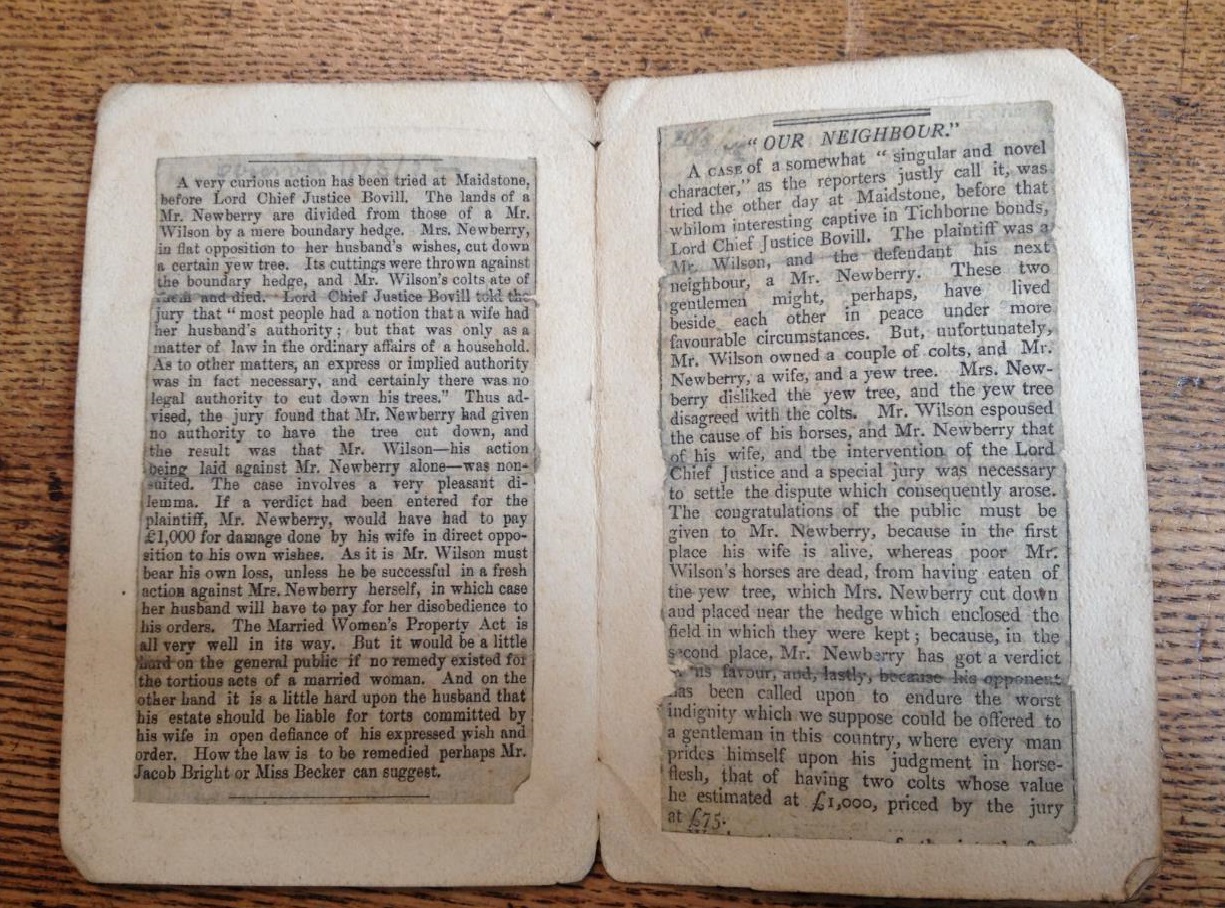 A very curious action has been tried at Maidstone,
before Lord Chief Justice Bovill. The lands of a
Mr. Newberry are divided from those of a Mr.
Wilson by a mere boundary hedge. Mrs. Newberry,
in flat opposition to her husband's wishes, cut down
a certain yew tree. Its cuttings were thrown against
the boundary hedge, and Mr. Wilson's colts ate of
them and died. Lord Chief Justice Bovill told the
jury that "most people had a notion that a wife had
her husband's authority; but that was only as a
matter of law in the ordinary affairs of a household.
As to other matters, an express or implied authority
was in fact necessary, and certainly there was no
legal authority to cut down his trees." Thus ad-
vised, the jury found that Mr. Newberry had given
no authority to have the tree cut down, and
the result was that Mr. Wilson—his action
being laid against Mr. Newberry alone—was non-
suited. The case involves a very pleasant di-
lemma. If a verdict had been entered for the
plaintiff, Mr. Newberry, would have had to pay
£1,000 for damage done by his wife in direct oppo-
sition to his own wishes. As it is Mr. Wilson must
bear his own loss, unless he be successful in a fresh
action against Mrs. Newberry herself, in which case
her husband will have to pay for her disobedience to
his orders. The Married Women's Property Act is
all very well in its way. But it would be a little
hard on the general public if no remedy existed for
the tortious acts of a married woman. And on the
other hand it is a little hard upon the husband that
his estate should be liable for torts committed by
his wife in open defiance of his expressed wish and
order. How the law is to be remedied perhaps Mr.
Jacob Bright or Miss Becker can suggest.
"OUR NEIGHBOUR."
A CASE of a somewhat "singular and novel
character," as the reporters justly call it, was
tried the other day at Maidstone, before that
whilom interesting captive in Tichborne bonds,
Lord Chief Justice Bovill. The plaintiff was a
Mr. Wilson, and the defendant his next
neighbour, a Mr. Newberry. These two
gentlemen might, perhaps, have lived
beside each other in peace under more
favourable circumstances. But, unfortunately,
Mr. Wilson owned a couple of colts, and Mr.
Newberry, a wife, and a yew tree. Mrs. New-
berry disliked the yew tree, and the yew tree
disagreed with the colts. Mr. Wilson espoused
the cause of his horses, and Mr. Newberry that
of his wife, and the intervention of the Lord
Chief Justice and a special jury was necessary
to settle the dispute which consequently arose.
The congratulations of the public must be
given to Mr. Newberry, because in the first
place his wife is alive, whereas poor Mr.
Wilson's horses are dead, from having eaten of
the yew tree, which Mrs. Newberry cut down
and placed near the hedge which enclosed the
field in which they were kept; because, in the
second place, Mr. Newberry has got a verdict
his favour, and, lastly, because his opponent
has been called upon to endure the worst
indignity which we suppose could be offered to
a gentleman in this country, where every man
prides himself upon his judgment in horse-
flesh, that of having two colts whose value
he estimated at £1,000, priced by the jury
at £75.